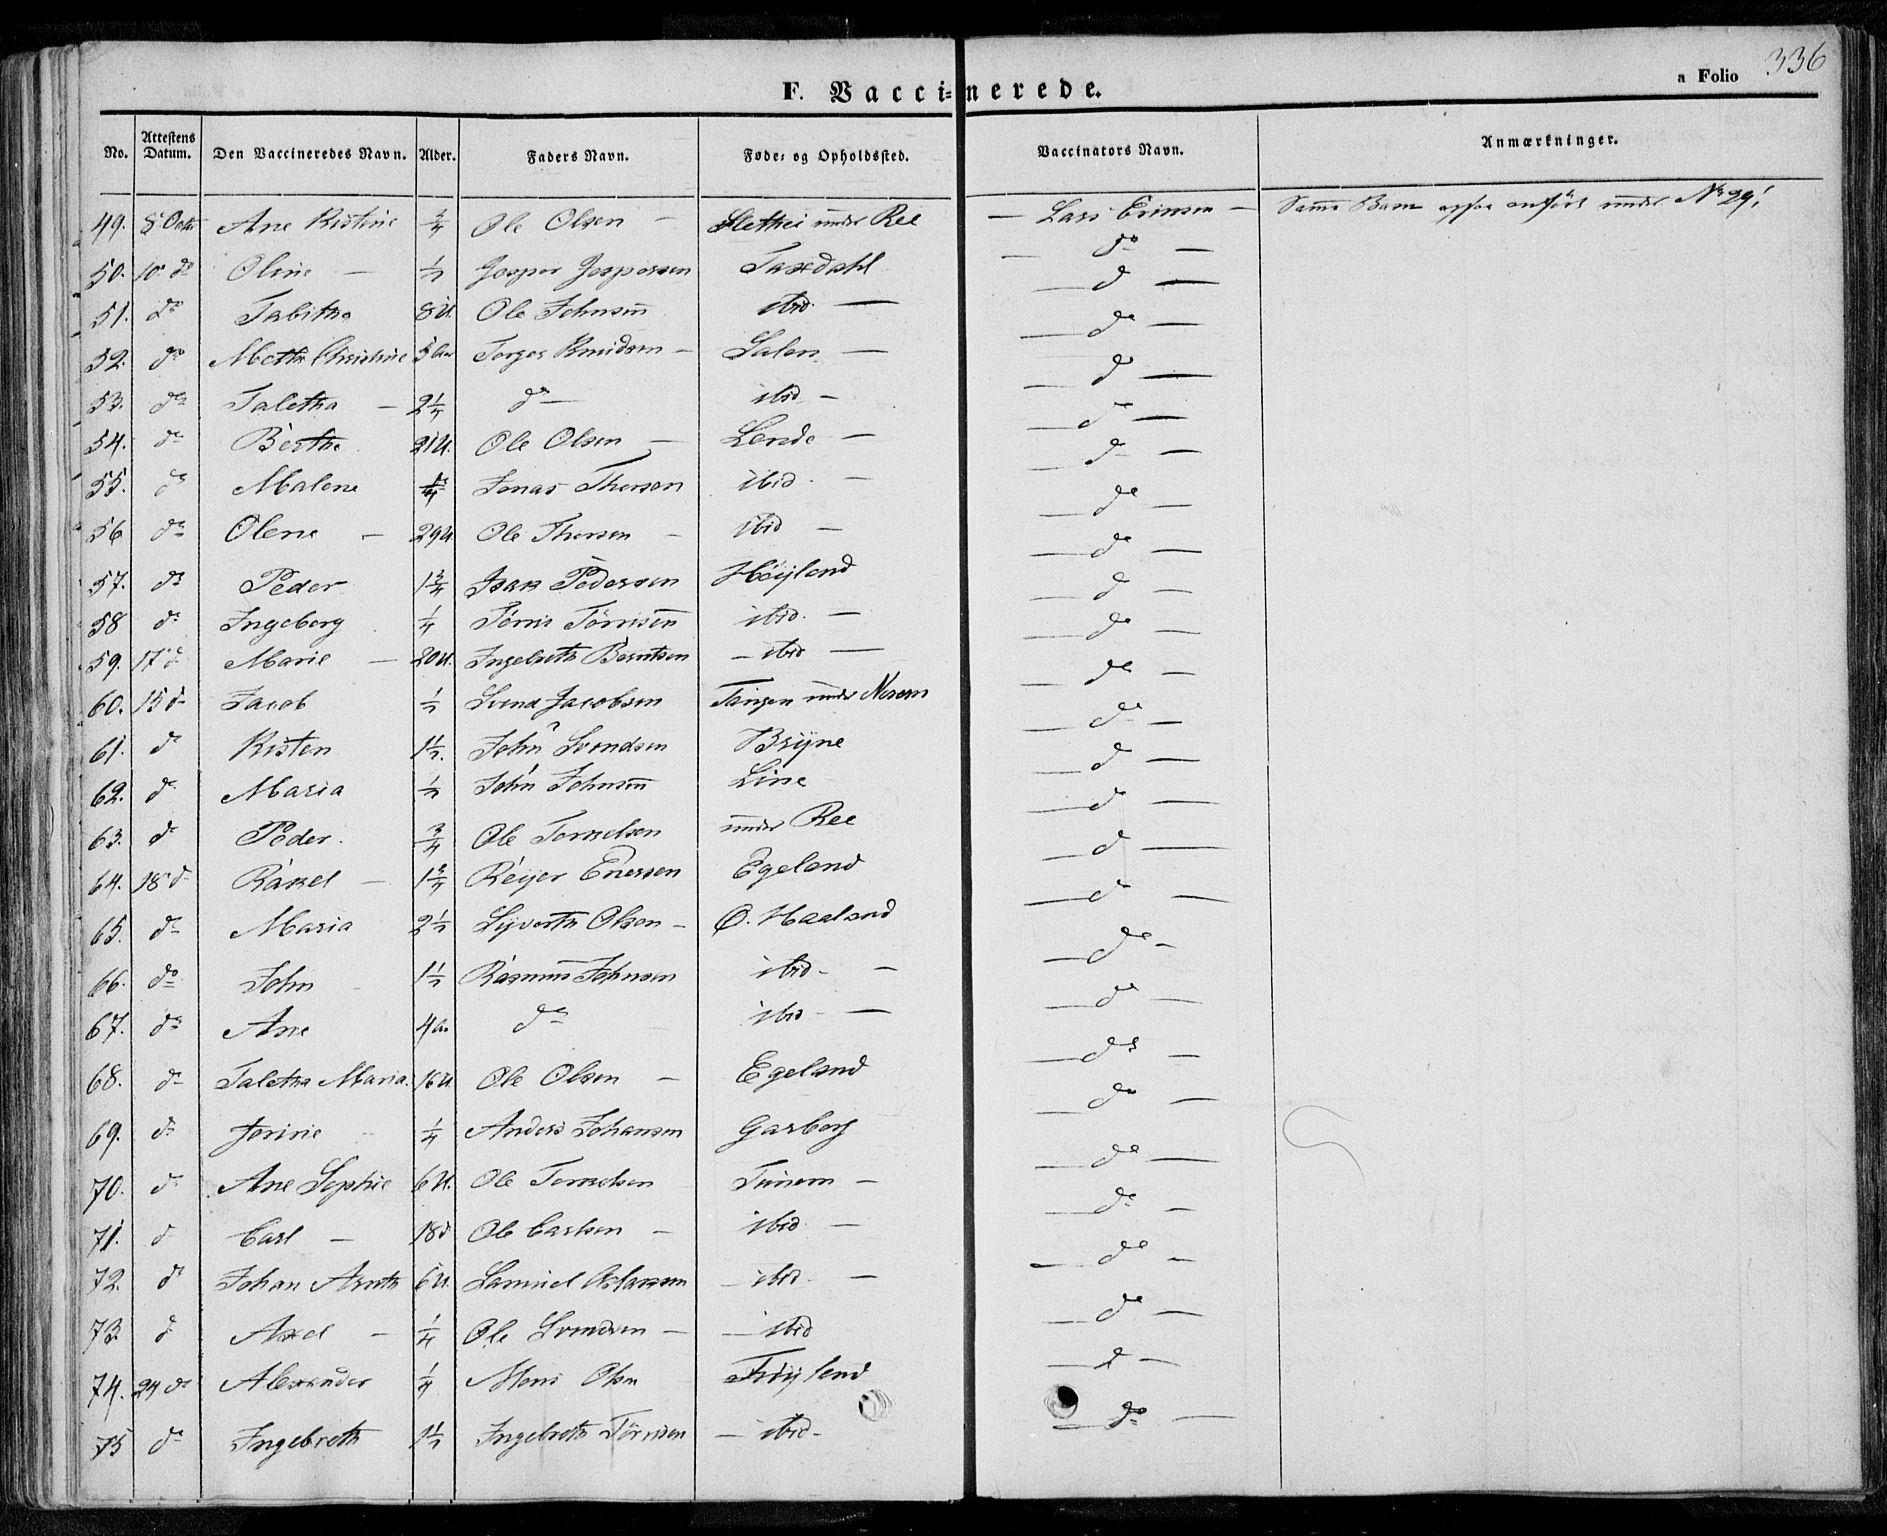 336
a Folio
F. Vaccinerede.
No. Attestens Datum. Den Vaccineredes Navn. Alder. Faders Navn. Føde- og Opholdssted. Vaccinators Navn. Anmærkninger.
49. 8 Octbr Ane Kistine 3/4 Ole Olsen — under Ree — Lars — Samme Barn anført under No 29!
50. 10 do Oline — 1/2 Jesper Jespersen Taxdahl — do —
51. do Tabitha 8 U. Ole Johnsen ibid. — — d —
52. do Mette Christine 5 Torger Knudsen — Salen — — do —
53. do Taletha — 2 1/4 do — ibid — — do —
54. do Berthe 21 U. Ole Olsen — Lende — — do —
55. do Malene Jonas Thorsen ibid. — — do —
56 do Olene — 29 U. Ole Thorsen — ibid — — do —
57. do Peder 1 3/4 Isak Pedersen Höyland — do —
58 do Ingeborg 1/4 Tönnis Tönnisen ibid. — — do —
59. 17 d Marie — 20 U. Ingebreth Berntsen — ibid — — do —
60. 15 d Jacob 1/2 Svend Jacobsen Tangen under Nærem — do —
61. do Kisten 1 1/2. John Svendsen Bryne — do —
62. do Maria 1/2 John Johnsen Line — d —
63. do Peder. 3/4 Ole Tormelsen under Ree — d —
64. 18 d Rakel — 1 3/4 Reijer Enersen Egeland — d —
65. do Maria 2 1/2 Syverth Olsen — O. Haaland — do —
66. do John 1 1/2 Rasmus Johnsen ibid — — do —
67. do Ane 4 do ibid — — do —
68. do Taletha Maria. 16 U. Ole Olsen — Egeland — do —
69. do Jorine 1/4 Anders Johansen Garborg — do —
70. do Ane Sophie 6 U. Ole Tormelsen Tunem — — do —
71. d Carl — 18 d Ole Carlsen — ibid — — do —
72. do Johan Arnth 6 U. Samuel Aslaksen — ibid — — do —
73. d Axel — 1/4 Ole Svendsen — — ibid — do —
74. 24 do Alexander 1/4 Mons Olsen Fröyland — d —
75 do Ingebreth 1 1/2 Ingebreth Törresen — ibid — — do —